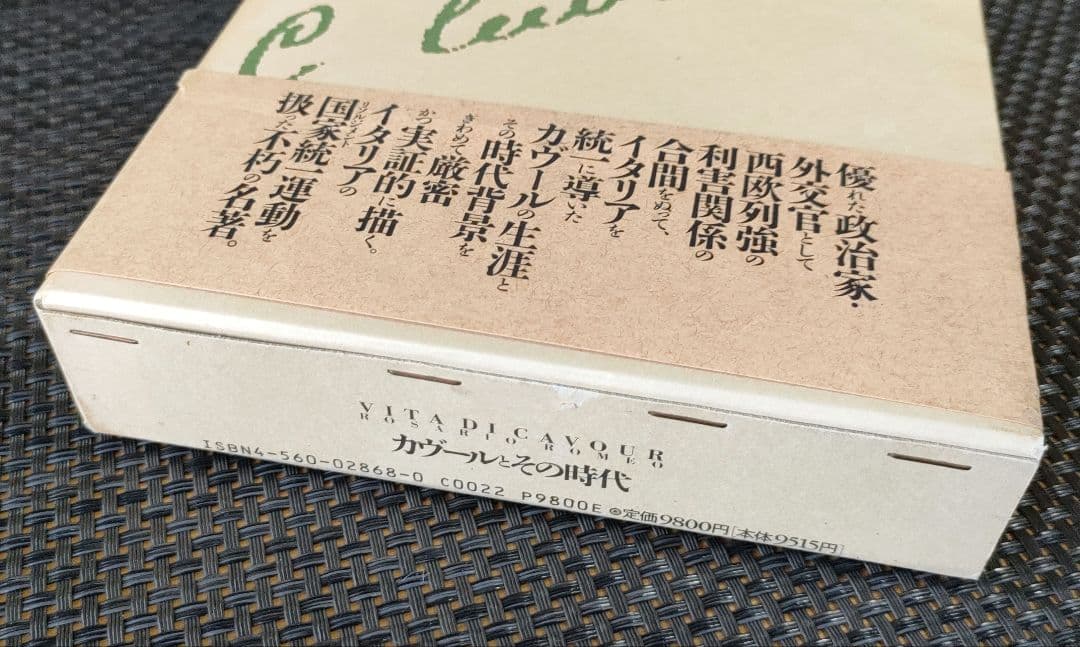 優れた政治家・
外交官として
西欧列強の
利害関係の
合間をぬって、
イタリアを
統一に導いた
カヴールの生涯と
その時代背景を
きわめて厳密
かつ実証的に描く。
イタリアの
リソルジメント
国家統一運動を
扱った不朽の名著。
VITA DI CAVOUR
ROSARIO ROMEO
カヴールとその時代
ISBN4-560-02868-0 C0022 P9800E ⊙定価9800円[本体9515円]